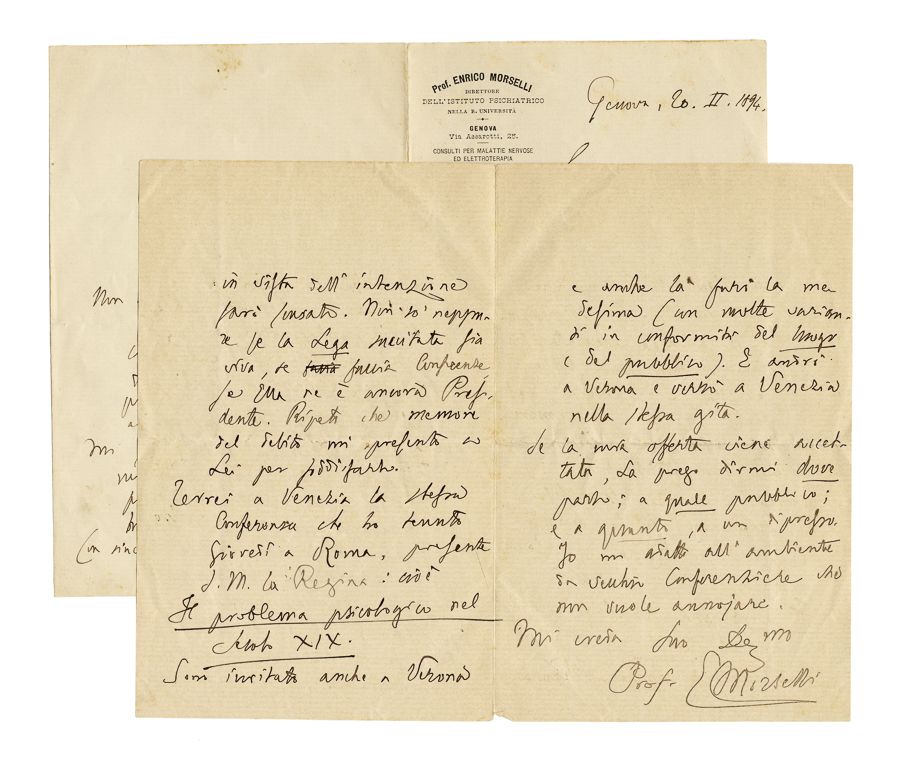 Prof. ENRICO MORSELLI
DIRETTORE
DELL'ISTITUTO PSICHIATRICO
NELLA R. UNIVERSITÀ
GENOVA
Via Assarotti, 23.
CONSULTI PER MALATTIE NERVOSE
ED ELETTROTERAPIA
Genova, 20. II. 1894.
Non
Mi
Con
in vista dell' intenzione
sarò scusato. Non so neppu-
re se la Lega suscitata sia
viva, se faccia Conferenze
se Ella ne è ancora Presi-
dente. Ripeto che memore
del debito mi presento a
Lei per soddisfarlo.
Terrei a Venezia la stessa
Conferenza che ho tenuto
Giovedì a Roma, presente
S. M. la Regina: cioè
Il problema psicologico nel
Secolo XIX.
Sono invitato anche a Verona
e anche là farò la me
desima (con molte varian-
ti in conformità del luogo
e del pubblico). E andrò
a Verona e verrò a Venezia
nella stessa gita.
Se la mia offerta viene accet-
tata, La prego dirmi dove
parlo; a quale pubblico;
e a quanto, a un dipresso.
Io mi adatto all'ambiente
da vecchio Conferenziere che
non vuole annojare.
Mi creda Suo De mo
Prof. EMorselli